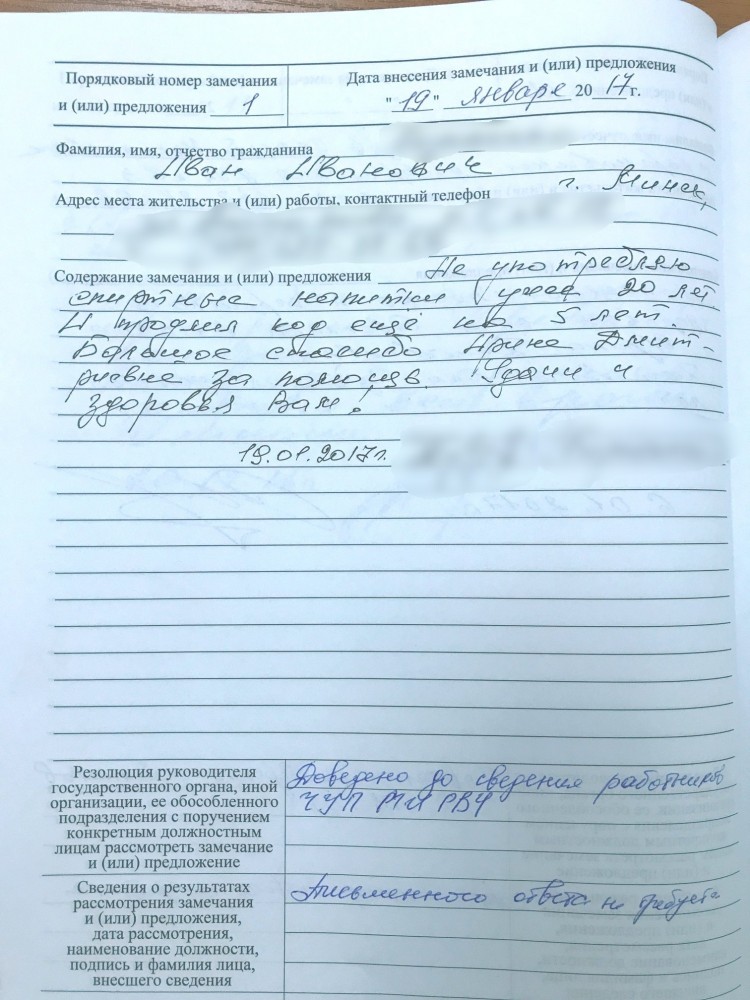 Порядковый номер замечания
и (или) предложения 1
Дата внесения замечания и (или) предложения
"19" января 2017 г.
Фамилия, имя, отчество гражданина
Иван Иванович
г. Минск,
Адрес места жительства и (или) работы, контактный телефон
Содержание замечания и (или) предложения Не употребляю
спиртные напитки уже 20 лет
И продлил код ещё на 5 лет.
Большое спасибо Ирине Дмит-
риевне за помощь. Удачи и
здоровья Вам!
19.01.2017г.
Резолюция руководителя
государственного органа, иной
организации, ее обособленного
подразделения с поручением
конкретным должностным
лицам рассмотреть замечание
и (или) предложение
Доведено до сведения работников
ЧУП
Сведения о результатах
рассмотрения замечания
и (или) предложения,
дата рассмотрения,
наименование должности,
подпись и фамилия лица,
внесшего сведения
Письменного ответа не требует